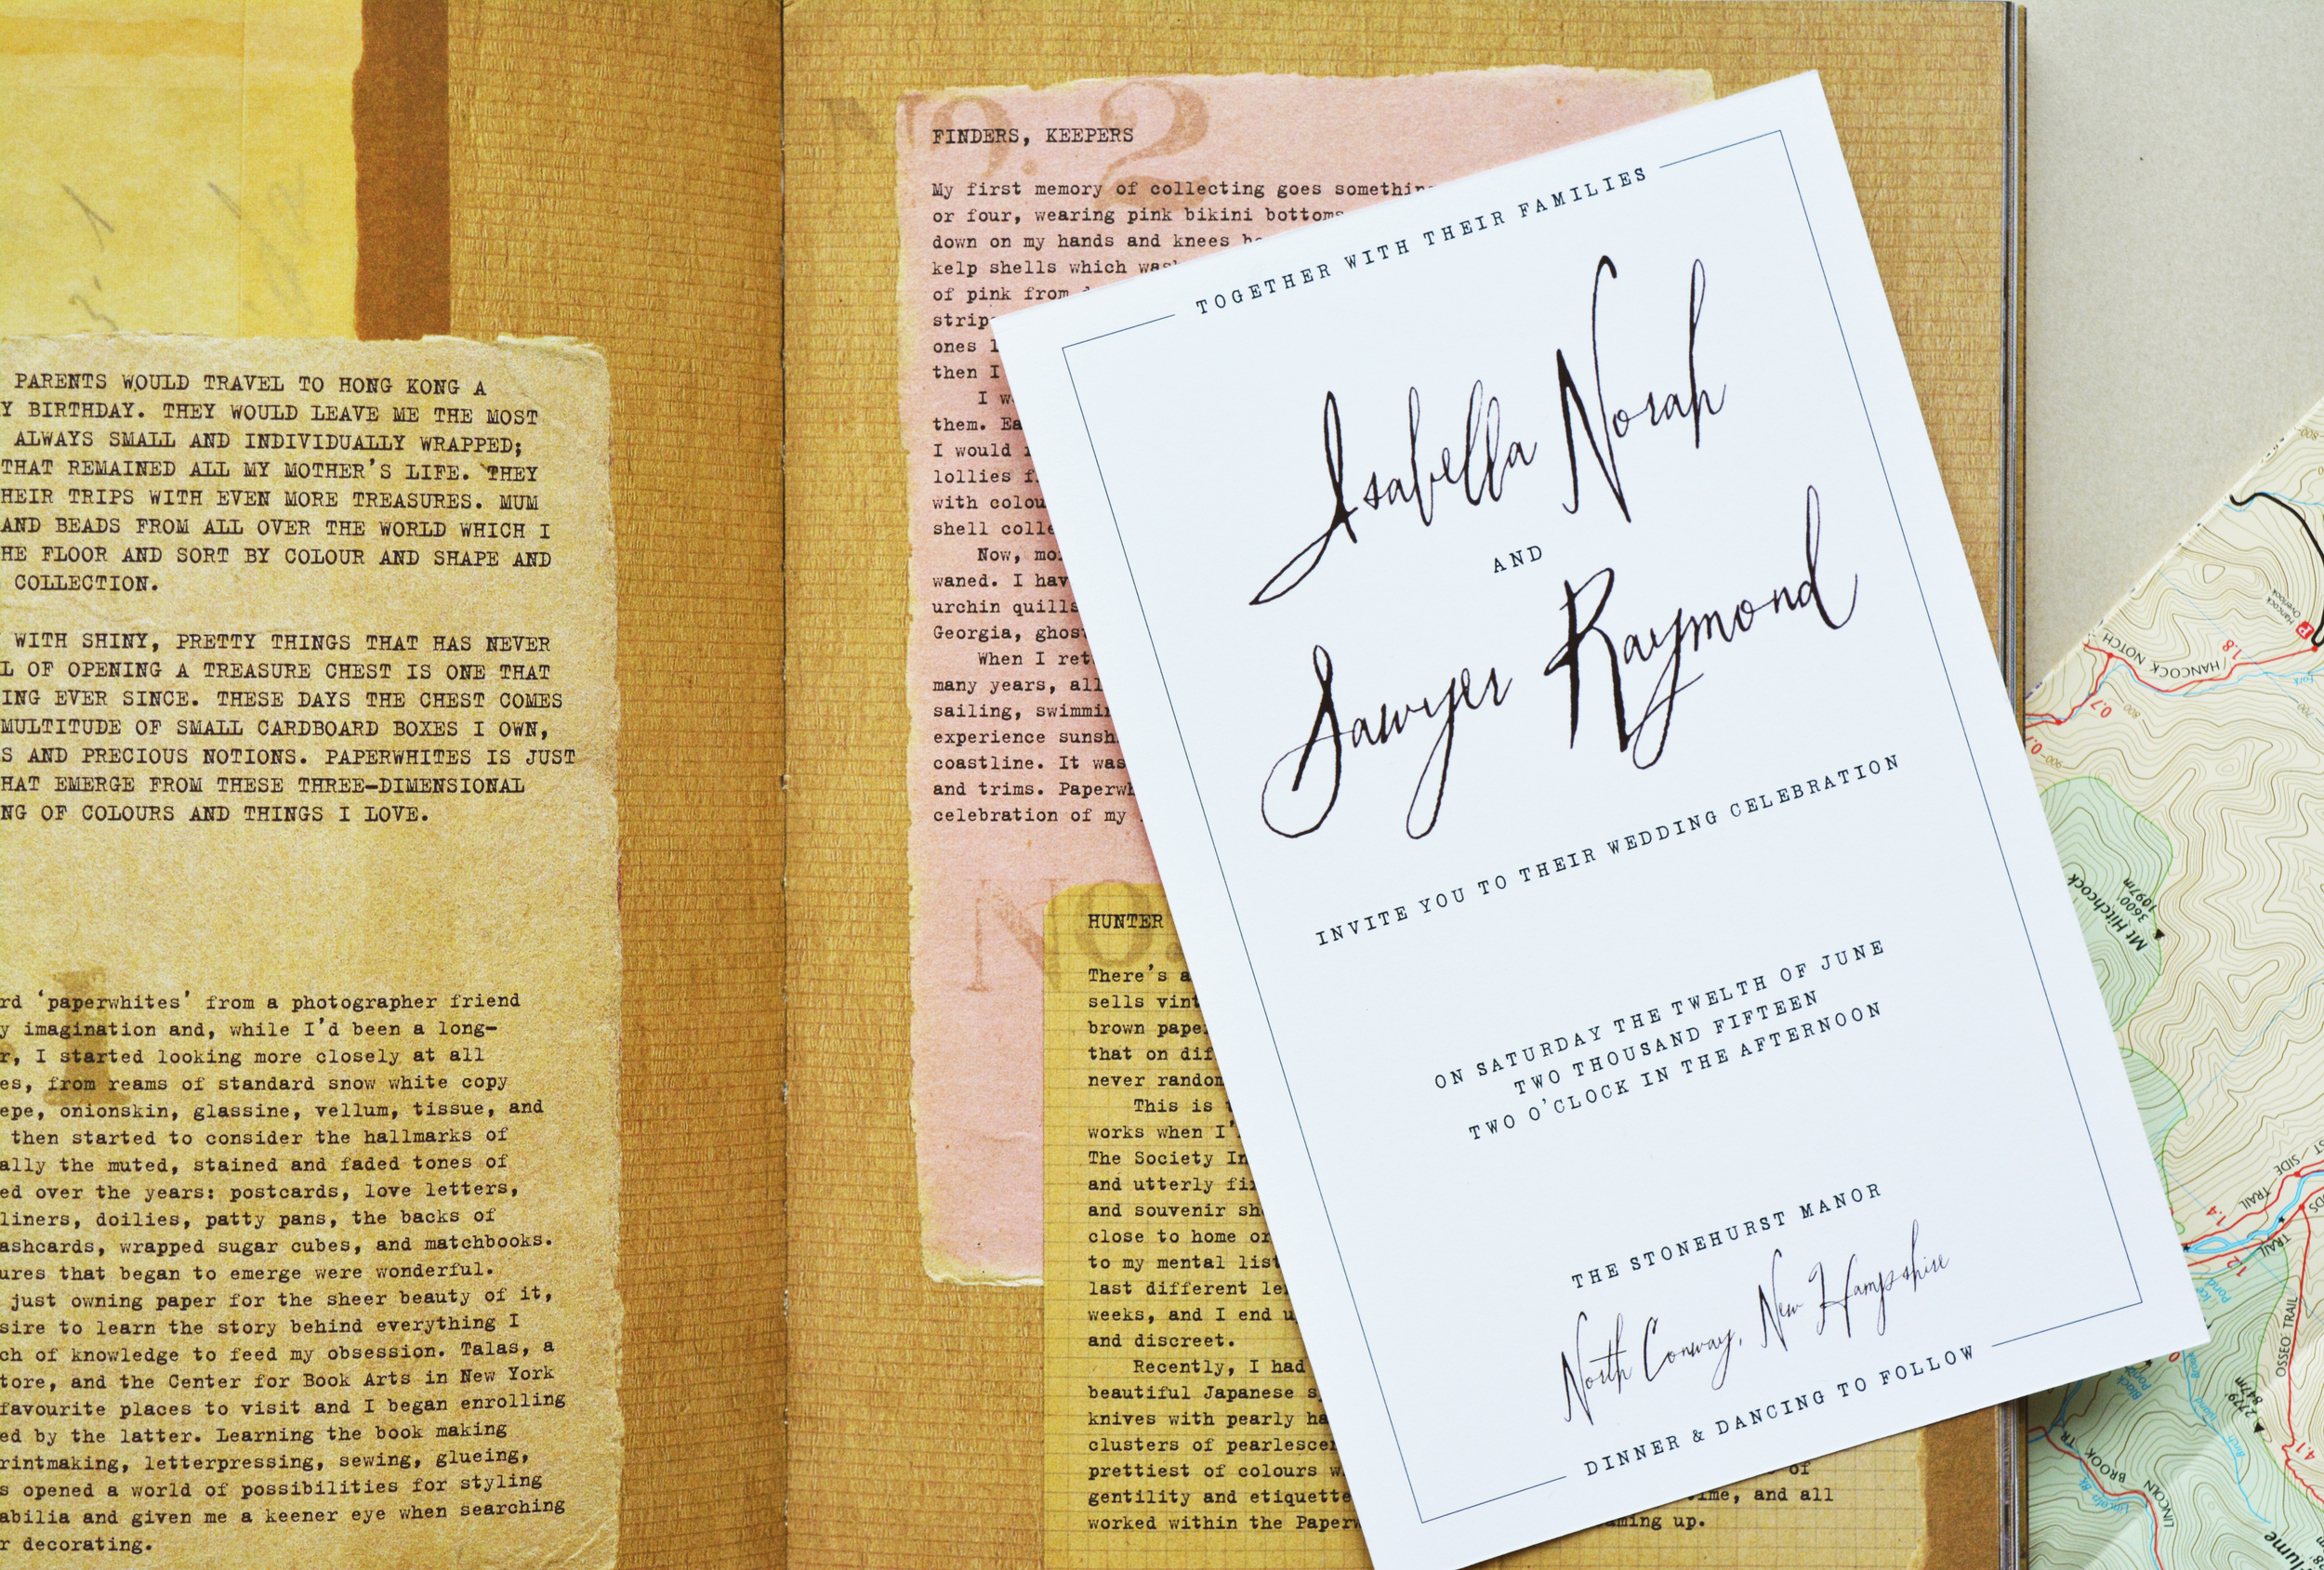 PARENTS WOULD TRAVEL TO HONG KONG A
Y BIRTHDAY. THEY WOULD LEAVE ME THE MOST
ALWAYS SMALL AND INDIVIDUALLY WRAPPED;
THAT REMAINED ALL MY MOTHER'S LIFE. THEY
HEIR TRIPS WITH EVEN MORE TREASURES. MUM
AND BEADS FROM ALL OVER THE WORLD WHICH I
HE FLOOR AND SORT BY COLOUR AND SHAPE AND
COLLECTION.
WITH SHINY, PRETTY THINGS THAT HAS NEVER
L OF OPENING A TREASURE CHEST IS ONE THAT
ING EVER SINCE. THESE DAYS THE CHEST COMES
MULTITUDE OF SMALL CARDBOARD BOXES I OWN,
S AND PRECIOUS NOTIONS. PAPERWHITES IS JUST
HAT EMERGE FROM THESE THREE-DIMENSIONAL
NG OF COLOURS AND THINGS I LOVE.
1
rd 'paperwhites' from a photographer friend
y imagination and, while I'd been a long-
r, I started looking more closely at all
es, from reams of standard snow white copy
epe, onionskin, glassine, vellum, tissue, and
then started to consider the hallmarks of
ally the muted, stained and faded tones of
ed over the years: postcards, love letters,
liners, doilies, patty pans, the backs of
ashcards, wrapped sugar cubes, and matchbooks.
ures that began to emerge were wonderful.
just owning paper for the sheer beauty of it,
sire to learn the story behind everything I
ch of knowledge to feed my obsession. Talas, a
tore, and the Center for Book Arts in New York
favourite places to visit and I began enrolling
ed by the latter. Learning the book making
rintmaking, letterpressing, sewing, glueing,
s opened a world of possibilities for styling
abilia and given me a keener eye when searching
r decorating.
No. 2
FINDERS, KEEPERS
My first memory of collecting goes somethin
or four, wearing pink bikini bottoms
down on my hands and knees
kelp shells which was
of pink from
strip
ones l
then I
I w
them. Ea
I would
lollies f
with colou
shell colle
Now, mo
waned. I hav
urchin quills
Georgia, ghos
When I ret
many years, all
sailing, swimmi
experience sunsh
coastline. It was
and trims. Paperwh
celebration of my
No.
HUNTER
There's a
sells vint
brown pape
that on dif
never random
This is
works when I'
The Society In
and utterly fi
and souvenir sh
close to home or
to my mental list
last different le
weeks, and I end u
and discreet.
Recently, I had
beautiful Japanese s
knives with pearly ha
clusters of pearlescen
prettiest of colours w of
gentility and etiquette ime, and all
worked within the Paperw aming up.
TOGETHER WITH THEIR FAMILIES
Isabella Norah
AND
Sawyer Raymond
INVITE YOU TO THEIR WEDDING CELEBRATION
ON SATURDAY THE TWELTH OF JUNE
TWO THOUSAND FIFTEEN
TWO O'CLOCK IN THE AFTERNOON
THE STONEHURST MANOR
North Conway, New Hampshire
DINNER & DANCING TO FOLLOW
Hancock
Overlook
P
HANCOCK NOTCH
1.8
0.7
0.7
800
900
700
Mt Hitchcock
3600
1097m
SIDE TRAIL
1.4
TRAIL
1.2
Ice Pond
OSSEO TRAIL
2779'
847m
4.1
Black Pond
Birch Island Brook
LINCOLN BROOK TR
Lincoln Br.
lume